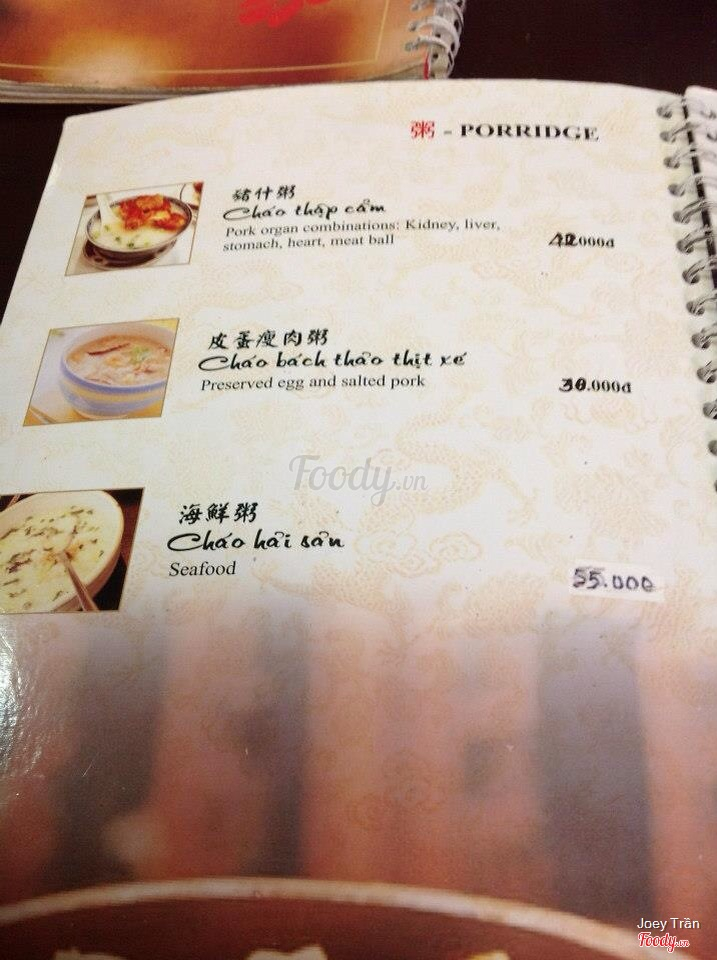 粥 - PORRIDGE
豬什粥
Cháo thập cẩm
Pork organ combinations: Kidney, liver,
stomach, heart, meat ball
42.000đ
皮蛋瘦肉粥
Cháo bách thảo thịt xế
Preserved egg and salted pork
.000đ
Foody.vn
海鮮粥
Cháo hải sản
Seafood
55.000
Joey Trần
Foody.vn